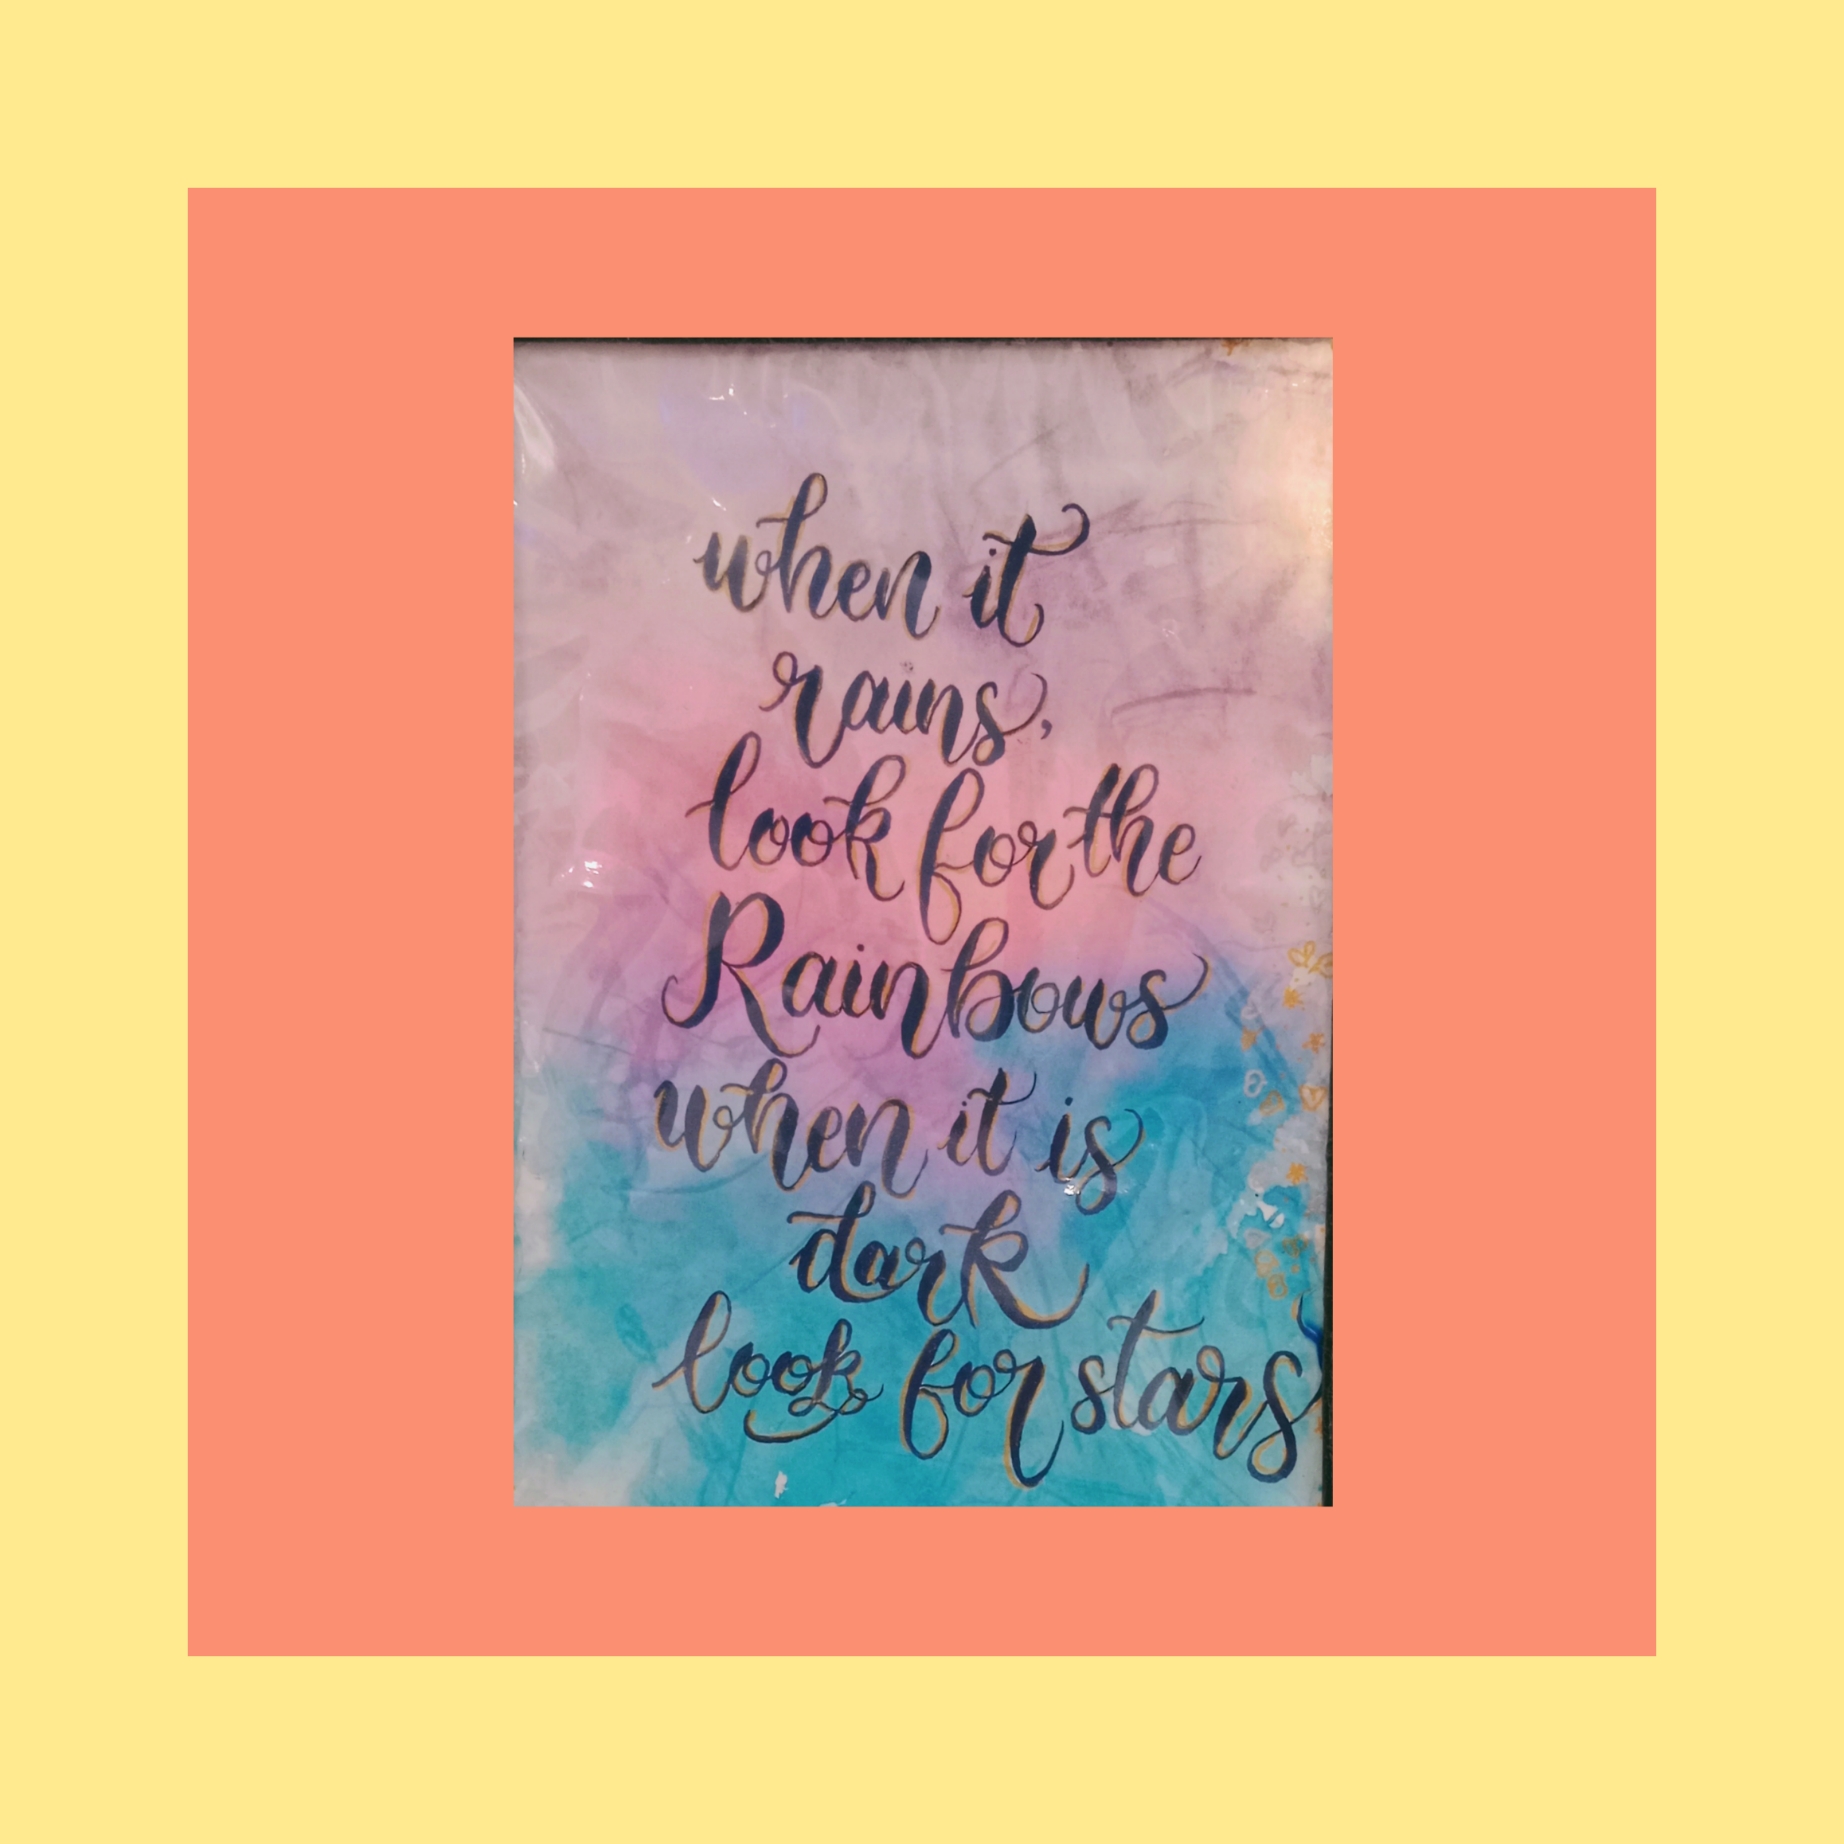 when it
rains,
look for the
Rainbows
when it is
dark
look for stars